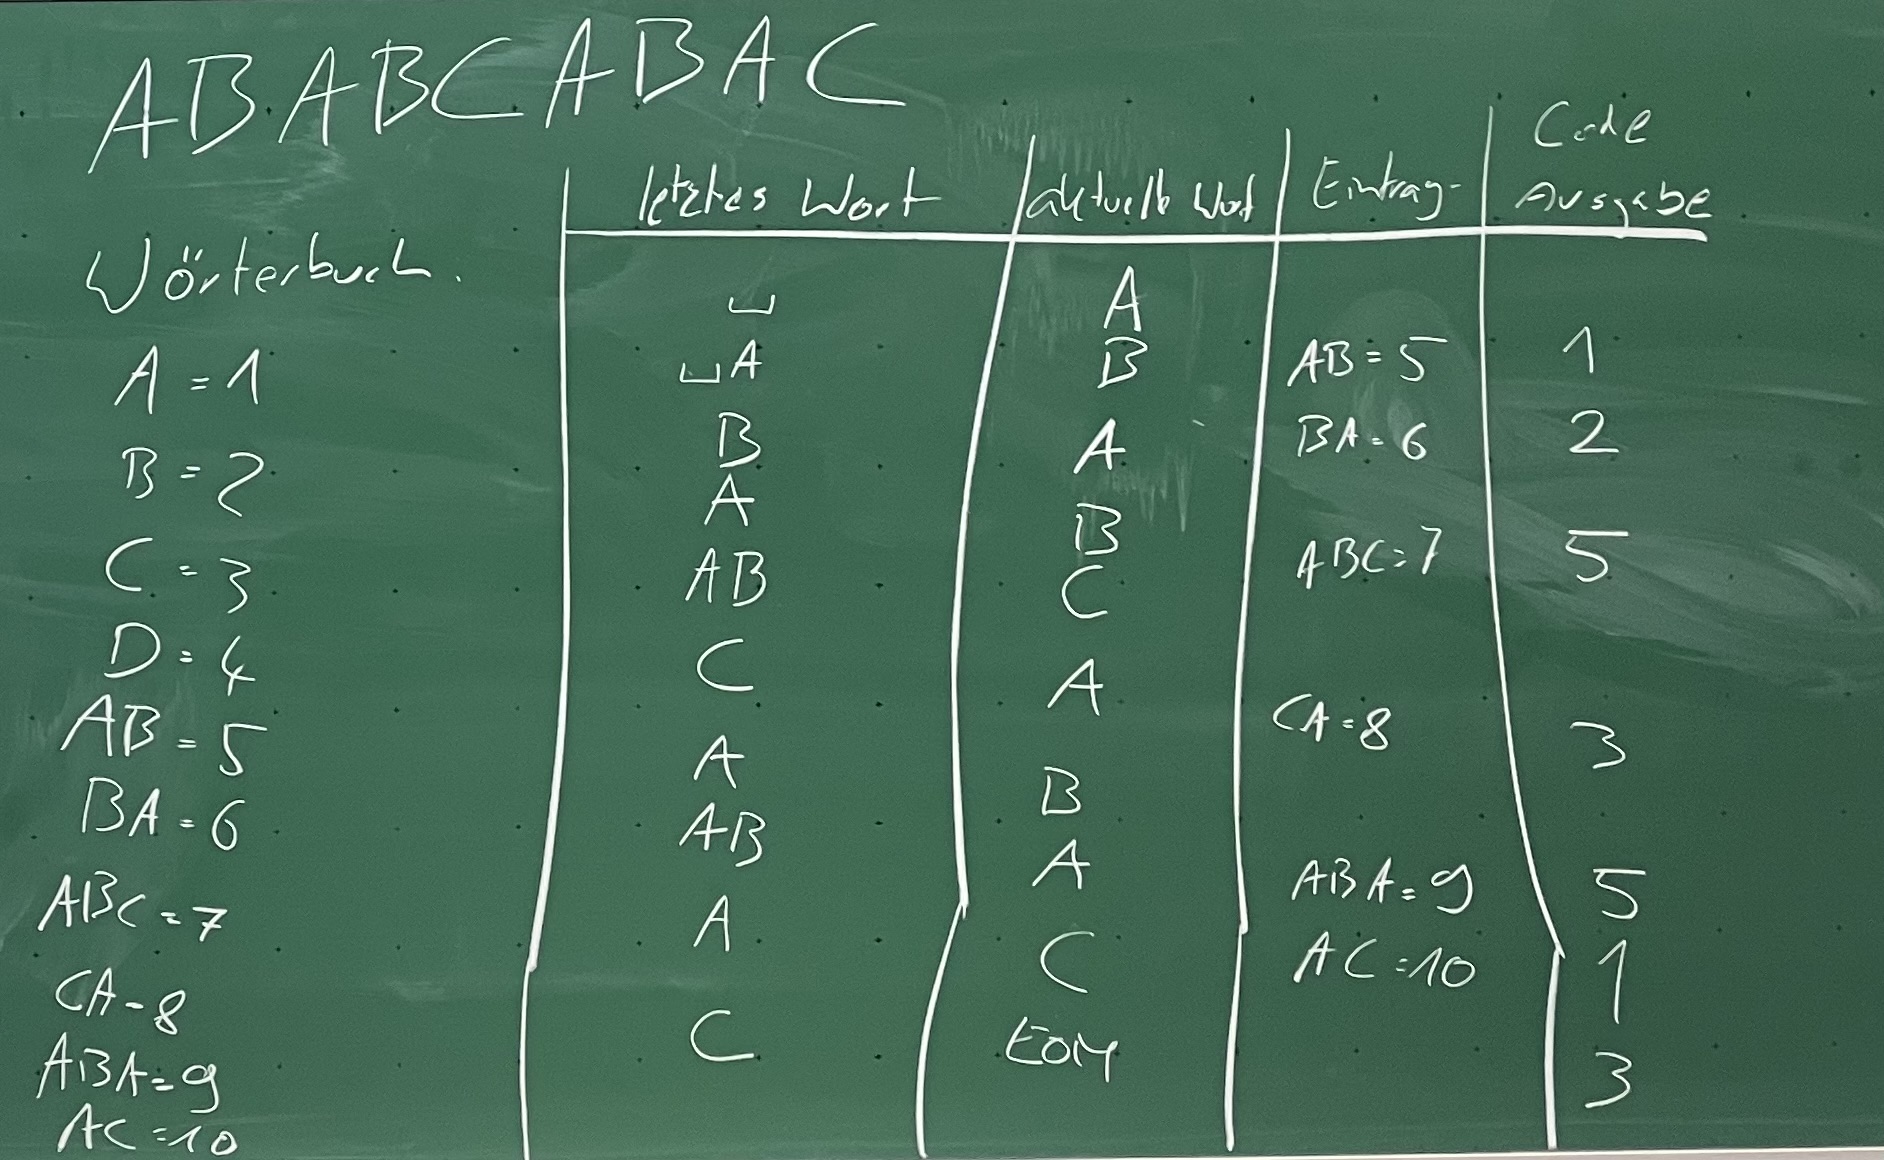 ABABCABAC
letztes Wort aktuelle Wort Eintrag- Code Ausgabe
Wörterbuch.
␣ A
A = 1 ␣A B AB = 5 1
B = 2 B A BA = 6 2
A B
C = 3 AB C ABC = 7 5
D = 4 C A CA = 8 3
AB = 5 A B
BA = 6 AB A ABA = 9 5
ABC = 7 A C AC = 10 1
CA - 8 C EOM 3
ABA = 9
AC = 10